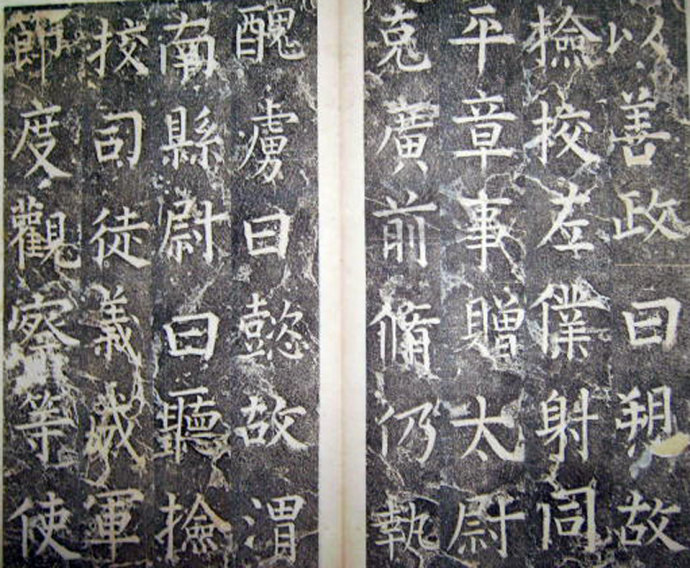 以善政曰朔故
撿挍左僕射同
平章事贈太尉
克廣前脩仍執
醜虜曰懿故渭
南縣尉曰聽撿
挍司徒義成軍
節度觀察等使